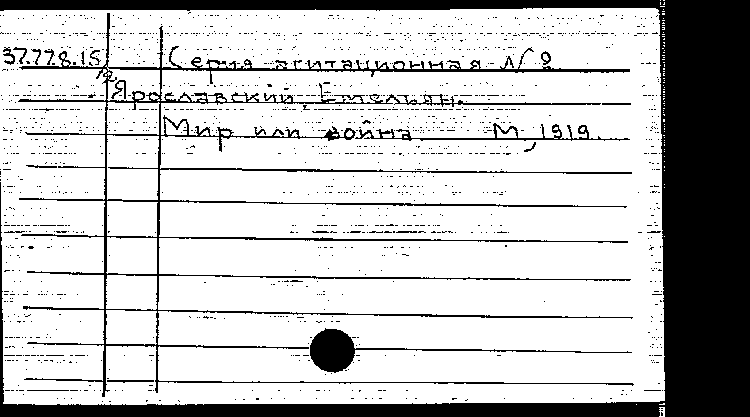 37.778.15 Серия агитационная № 9
19 Ярославский, Емельян.
Мир или война М, 1919.